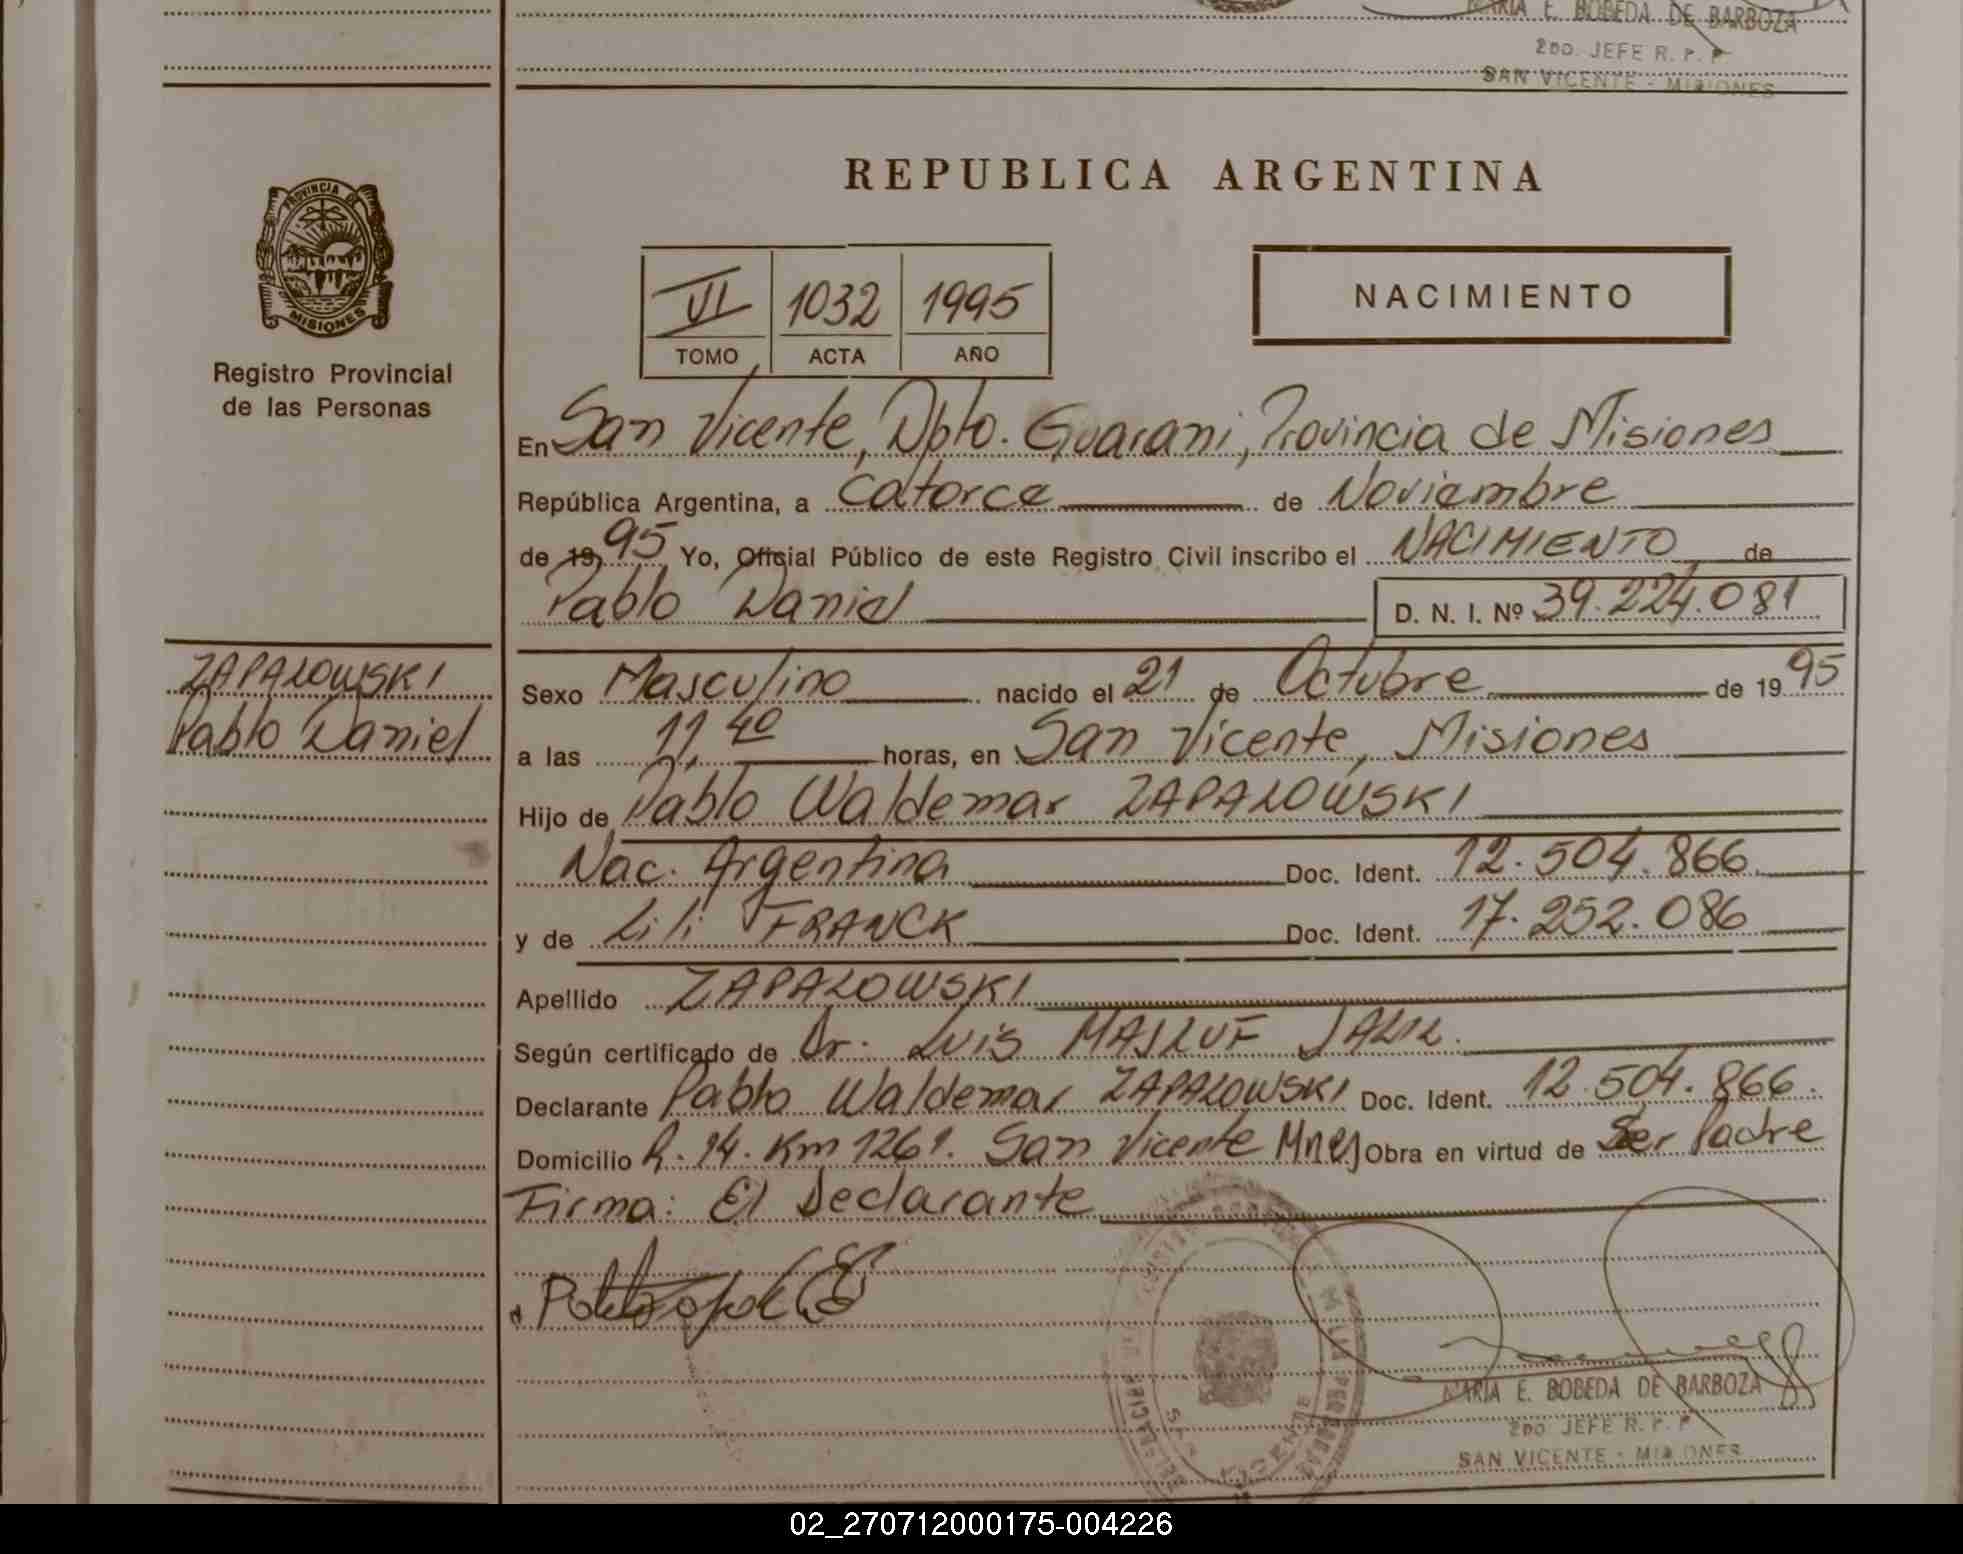 MARIA E. BOBEDA DE BARBOZA
2DO. JEFE R. P. P
SAN VICENTE - MISIONES
REPUBLICA ARGENTINA
PROVINCIA DE
MISIONES
Registro Provincial
de las Personas
VI 1032 1995
TOMO ACTA AÑO
NACIMIENTO
En San Vicente, Dpto. Guarani, Provincia de Misiones
República Argentina, a Catorce de Noviembre
de 1995 Yo, Oficial Público de este Registro Civil inscribo el NACIMIENTO de
Pablo Daniel D. N. I. Nº 39.224.081
ZAPALOWSKI
Pablo Daniel
Sexo Masculino nacido el 21 de Octubre de 1995
a las 11,40 horas, en San Vicente, Misiones
Hijo de Pablo Waldemar ZAPALOWSKI
Nac. Argentina Doc. Ident. 12.504.866
y de Lili FRANCK Doc. Ident. 17.252.086
Apellido ZAPALOWSKI
Según certificado de Dr. Luis MASLUF JALIL.
Declarante Pablo Waldemar ZAPALOWSKI Doc. Ident. 12.504.866.
Domicilio R. 14. Km 1261. San Vicente Mnes Obra en virtud de Ser Padre
Firma: El Declarante
MARIA E. BOBEDA DE BARBOZA
2DO JEFE R. P. P
SAN VICENTE - MISIONES
02_270712000175-004226